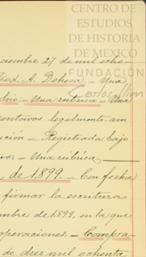 CENTRO DE
ESTUDIOS
DE HISTORIA
DE MEXICO
FUNDACIÓN
Carlos Slim
27 de mil ocho-
A. Dehesa. - Una
- Una rúbrica - Una
legalmente au
- Registrada bajo
- Una rúbrica.
de 1899. - Con fecha
firmar la escritura
mbre de 1899, en la que
operaciones. - Compra-
de diez mil ochenta